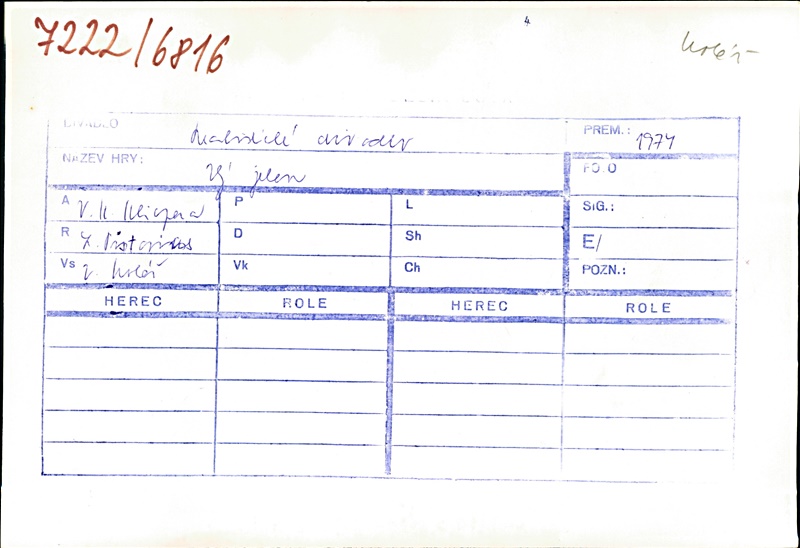 7222/6816
4
Kolář
DIVADLO Realistické divadlo PREM.: 1974
NÁZEV HRY: jelen FOTO
A V. K. Klicpera P L SIG.:
R L. Pistorius D Sh E/
Vs V. Kolář Vk Ch POZN.:
HEREC ROLE HEREC ROLE